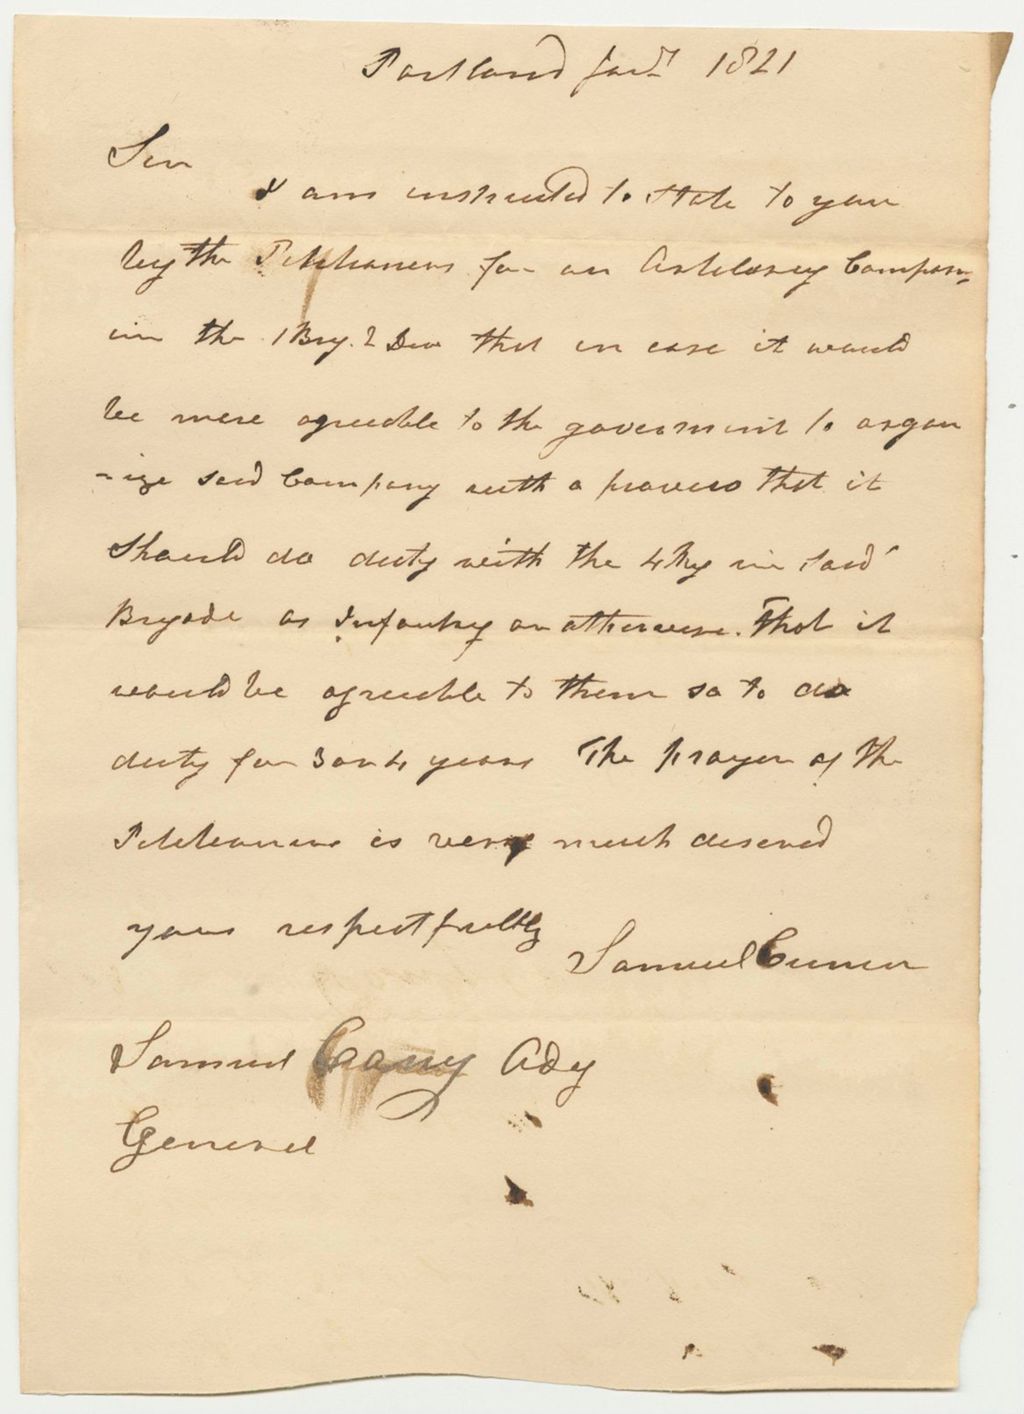 Portland Jany 1821
Sir
I am instructed to state to you
by the Petitioners for an Artillery Company
in the 1 Brig. 2 Div that in case it would
be more agreeable to the government to organ
-ize said Company with a proviso that it
should do duty with the 4 Reg in said
Brigade as Infantry or otherwise. That it
would be agreeable to them so to do
duty for 3 or 4 years The prayer of the
Petitioners is very much desired
yours respectfully
Samuel
Samuel Adj
General